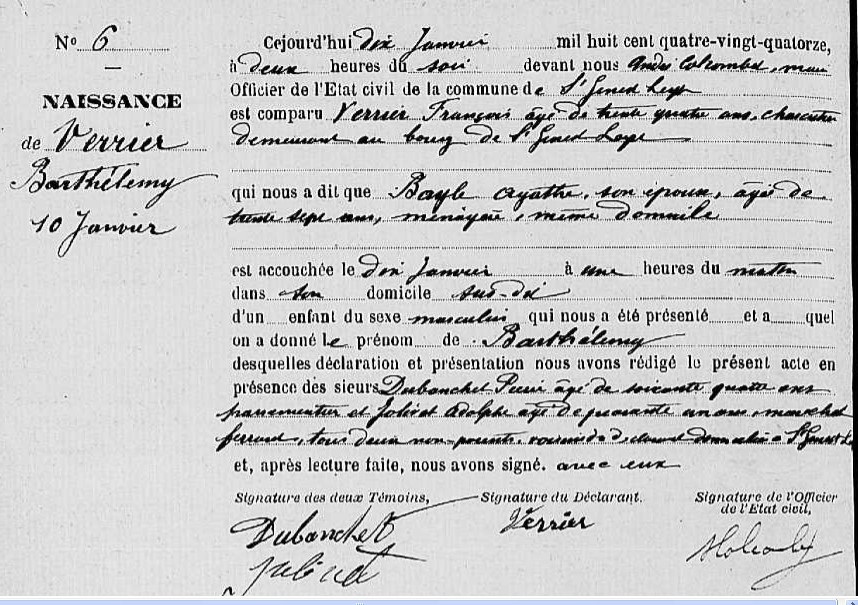 Nº 6
NAISSANCE
de Verrier
Barthélemy
10 Janvier
Cejourd'hui dix Janvier mil huit cent quatre-vingt-quatorze,
à deux heures du soir devant nous André Colcombet, maire
Officier de l'Etat civil de la commune de St Genest Lerpt
est comparu Verrier François âgé de trente quatre ans, charcutier
demeurant au bourg de St Genest Lerpt
qui nous a dit que Bayle Agathe, son épouse, âgée de
trente sept ans, ménagère, même domicile
est accouchée le dix Janvier à une heures du matin
dans son domicile sus-dit
d'un enfant du sexe masculin qui nous a été présenté et a quel
on a donné le prénom de Barthélemy
desquelles déclaration et présentation nous avons rédigé le présent acte en
présence des sieurs Dubanchet Pierre âgé de soixante quatre ans
passementier et Jolivet Adolphe âgé de quarante un ans, maréchal
ferrant, tous deux non-parents, voisins du déclarant domiciliés à St Genest L
et, après lecture faite, nous avons signé. avec eux
Signature des deux Témoins,
Signature du Déclarant.
Signature de l'Officier
de l'Etat civil,
Dubanchet
Verrier
Jolivet